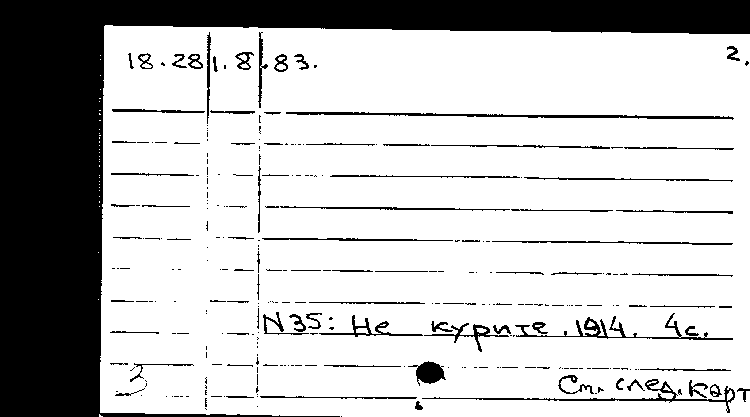 18.281.8.83. 2.
N35: Не курите. 1914. 4с.
3
См. след. карт